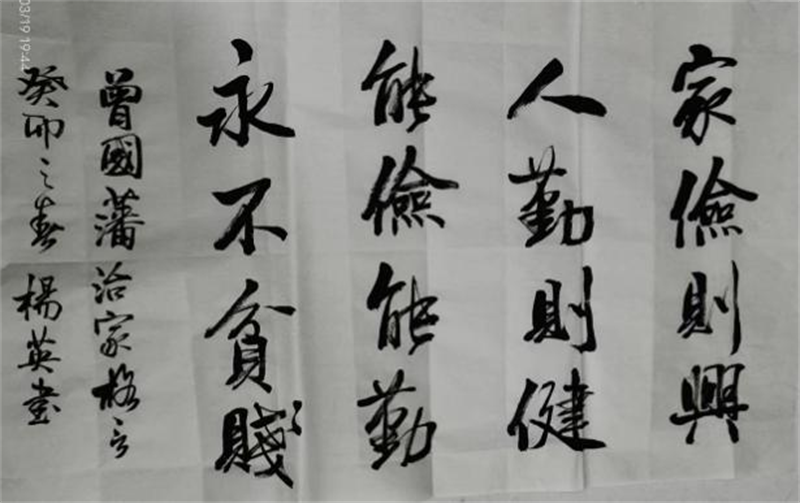 家儉則興
人勤則健
能儉能勤
永不貧賤
曾國藩治家格言
癸卯之春楊英書
03/19 19:44